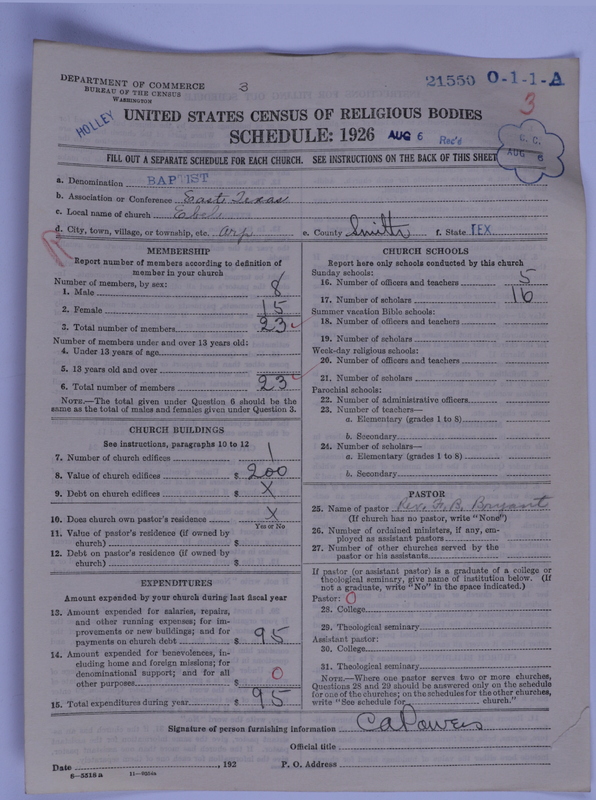 DEPARTMENT OF COMMERCE
BUREAU OF THE CENSUS
WASHINGTON
3
21550 O-1-1-A
3
HOLLEY
UNITED STATES CENSUS OF RELIGIOUS BODIES
SCHEDULE: 1926 AUG 6 Rec'd
C. C.
AUG 6
FILL OUT A SEPARATE SCHEDULE FOR EACH CHURCH. SEE INSTRUCTIONS ON THE BACK OF THIS SHEET
a. Denomination BAPTIST
b. Association or Conference East Texas
c. Local name of church
d. City, town, village, or township, etc. Arp e. County Smith f. State TEX.
MEMBERSHIP
Report number of members according to definition of
member in your church
Number of members, by sex:
1. Male 8
2. Female 15
3. Total number of members 23
Number of members under and over 13 years old:
4. Under 13 years of age
5. 13 years old and over
6. Total number of members 23
NOTE.—The total given under Question 6 should be the
same as the total of males and females given under Question 3.
CHURCH BUILDINGS
See instructions, paragraphs 10 to 12
7. Number of church edifices 1
8. Value of church edifices $ 200
9. Debt on church edifices $ X
10. Does church own pastor's residence X
Yes or No
11. Value of pastor's residence (if owned by
church) $
12. Debt on pastor's residence (if owned by
church) $
EXPENDITURES
Amount expended by your church during last fiscal year
13. Amount expended for salaries, repairs,
and other running expenses; for im-
provements or new buildings; and for
payments on church debt $ 95
14. Amount expended for benevolences, in-
cluding home and foreign missions; for
denominational support; and for all
other purposes $ 0
15. Total expenditures during year $ 95
CHURCH SCHOOLS
Report here only schools conducted by this church
Sunday schools:
16. Number of officers and teachers 5
17. Number of scholars 16
Summer vacation Bible schools:
18. Number of officers and teachers
19. Number of scholars
Week-day religious schools:
20. Number of officers and teachers
21. Number of scholars
Parochial schools:
22. Number of administrative officers
23. Number of teachers—
a. Elementary (grades 1 to 8)
b. Secondary
24. Number of scholars—
a. Elementary (grades 1 to 8)
b. Secondary
PASTOR
25. Name of pastor Rev. Bryant
(If church has no pastor, write "None")
26. Number of ordained ministers, if any, em-
ployed as assistant pastors
27. Number of other churches served by the
pastor or his assistants
If pastor (or assistant pastor) is a graduate of a college or
theological seminary, give name of institution below. (If
not a graduate, write "No" in the space indicated.)
Pastor: 0
28. College
29. Theological seminary
Assistant pastor:
30. College
31. Theological seminary
NOTE.—Where one pastor serves two or more churches,
Questions 28 and 29 should be answered only on the schedule
for one of the churches; on the schedules for the other churches,
write "See schedule for church."
Signature of person furnishing information C A Powers
Official title
Date , 192 P. O. Address